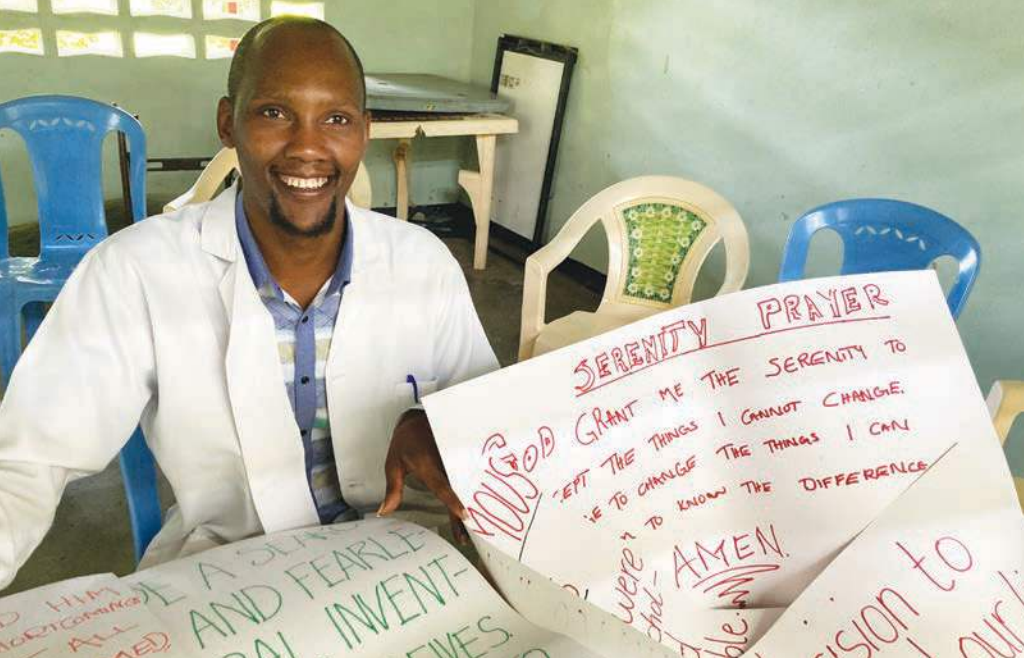 SERENITY PRAYER
GOD GRANT ME THE SERENITY TO
EPT THE THINGS I CANNOT CHANGE.
TO CHANGE THE THINGS I CAN
TO KNOW THE DIFFERENCE
AMEN.
MOUS
were
hol-
ble.
E A SEAR
AND FEARLE-
RAL INVENT-
ELVES.
HIM
SHORTCOMINGS
ALL
MED
ision to
our li